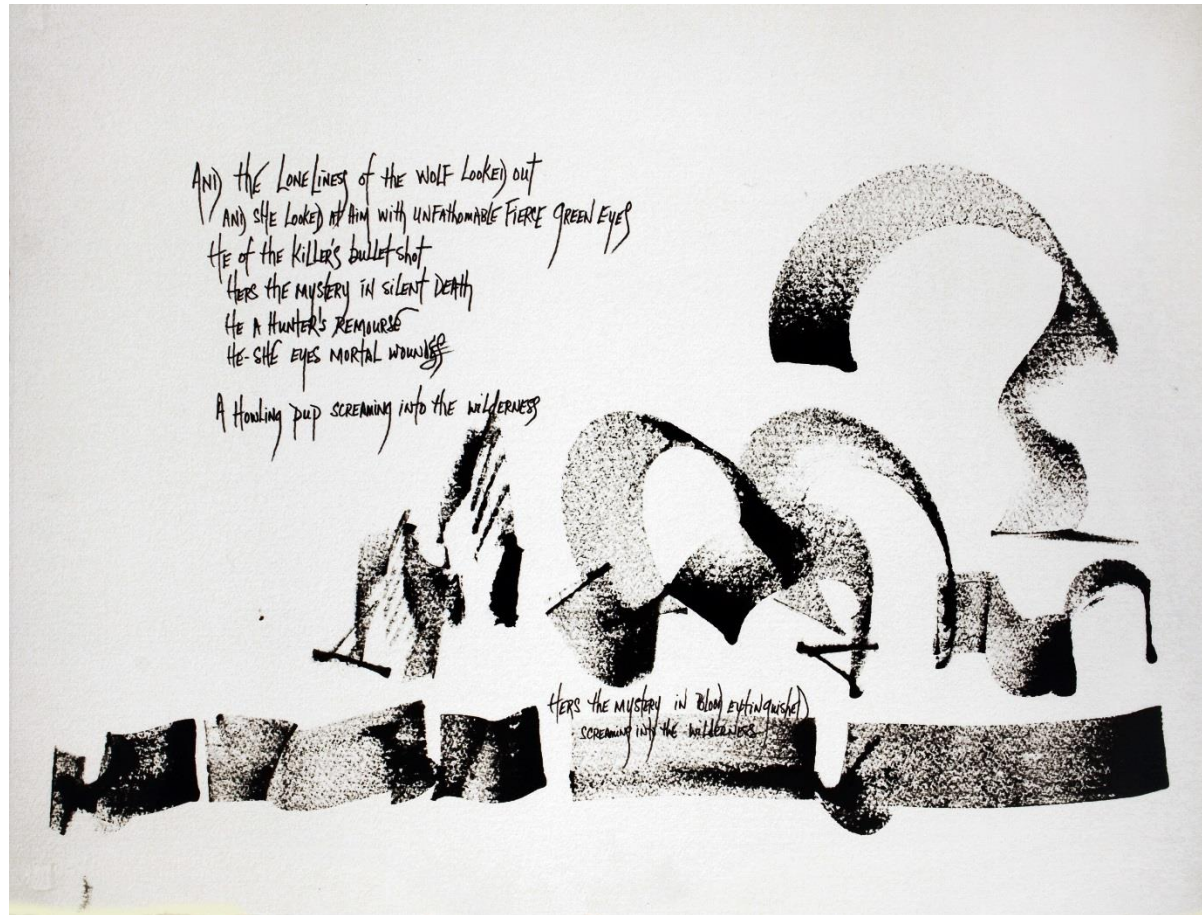 AND the LONELINESS of the WOLF LOOKED out
AND SHE LOOKED AT HIM WITH UNFATHOMABLE FIERCE GREEN EYES
HE of the KILLER'S bullet shot
HERS the MYSTERY IN SILENT DEATH
HE A HUNTER'S REMOURSE
HE-SHE EYES MORTAL WOUNDS
A HOWLING PUP SCREAMING INTO the WILDERNESS
HERS the MYSTERY IN BLOOD EXTINGUISHED
SCREAMING INTO the WILDERNESS